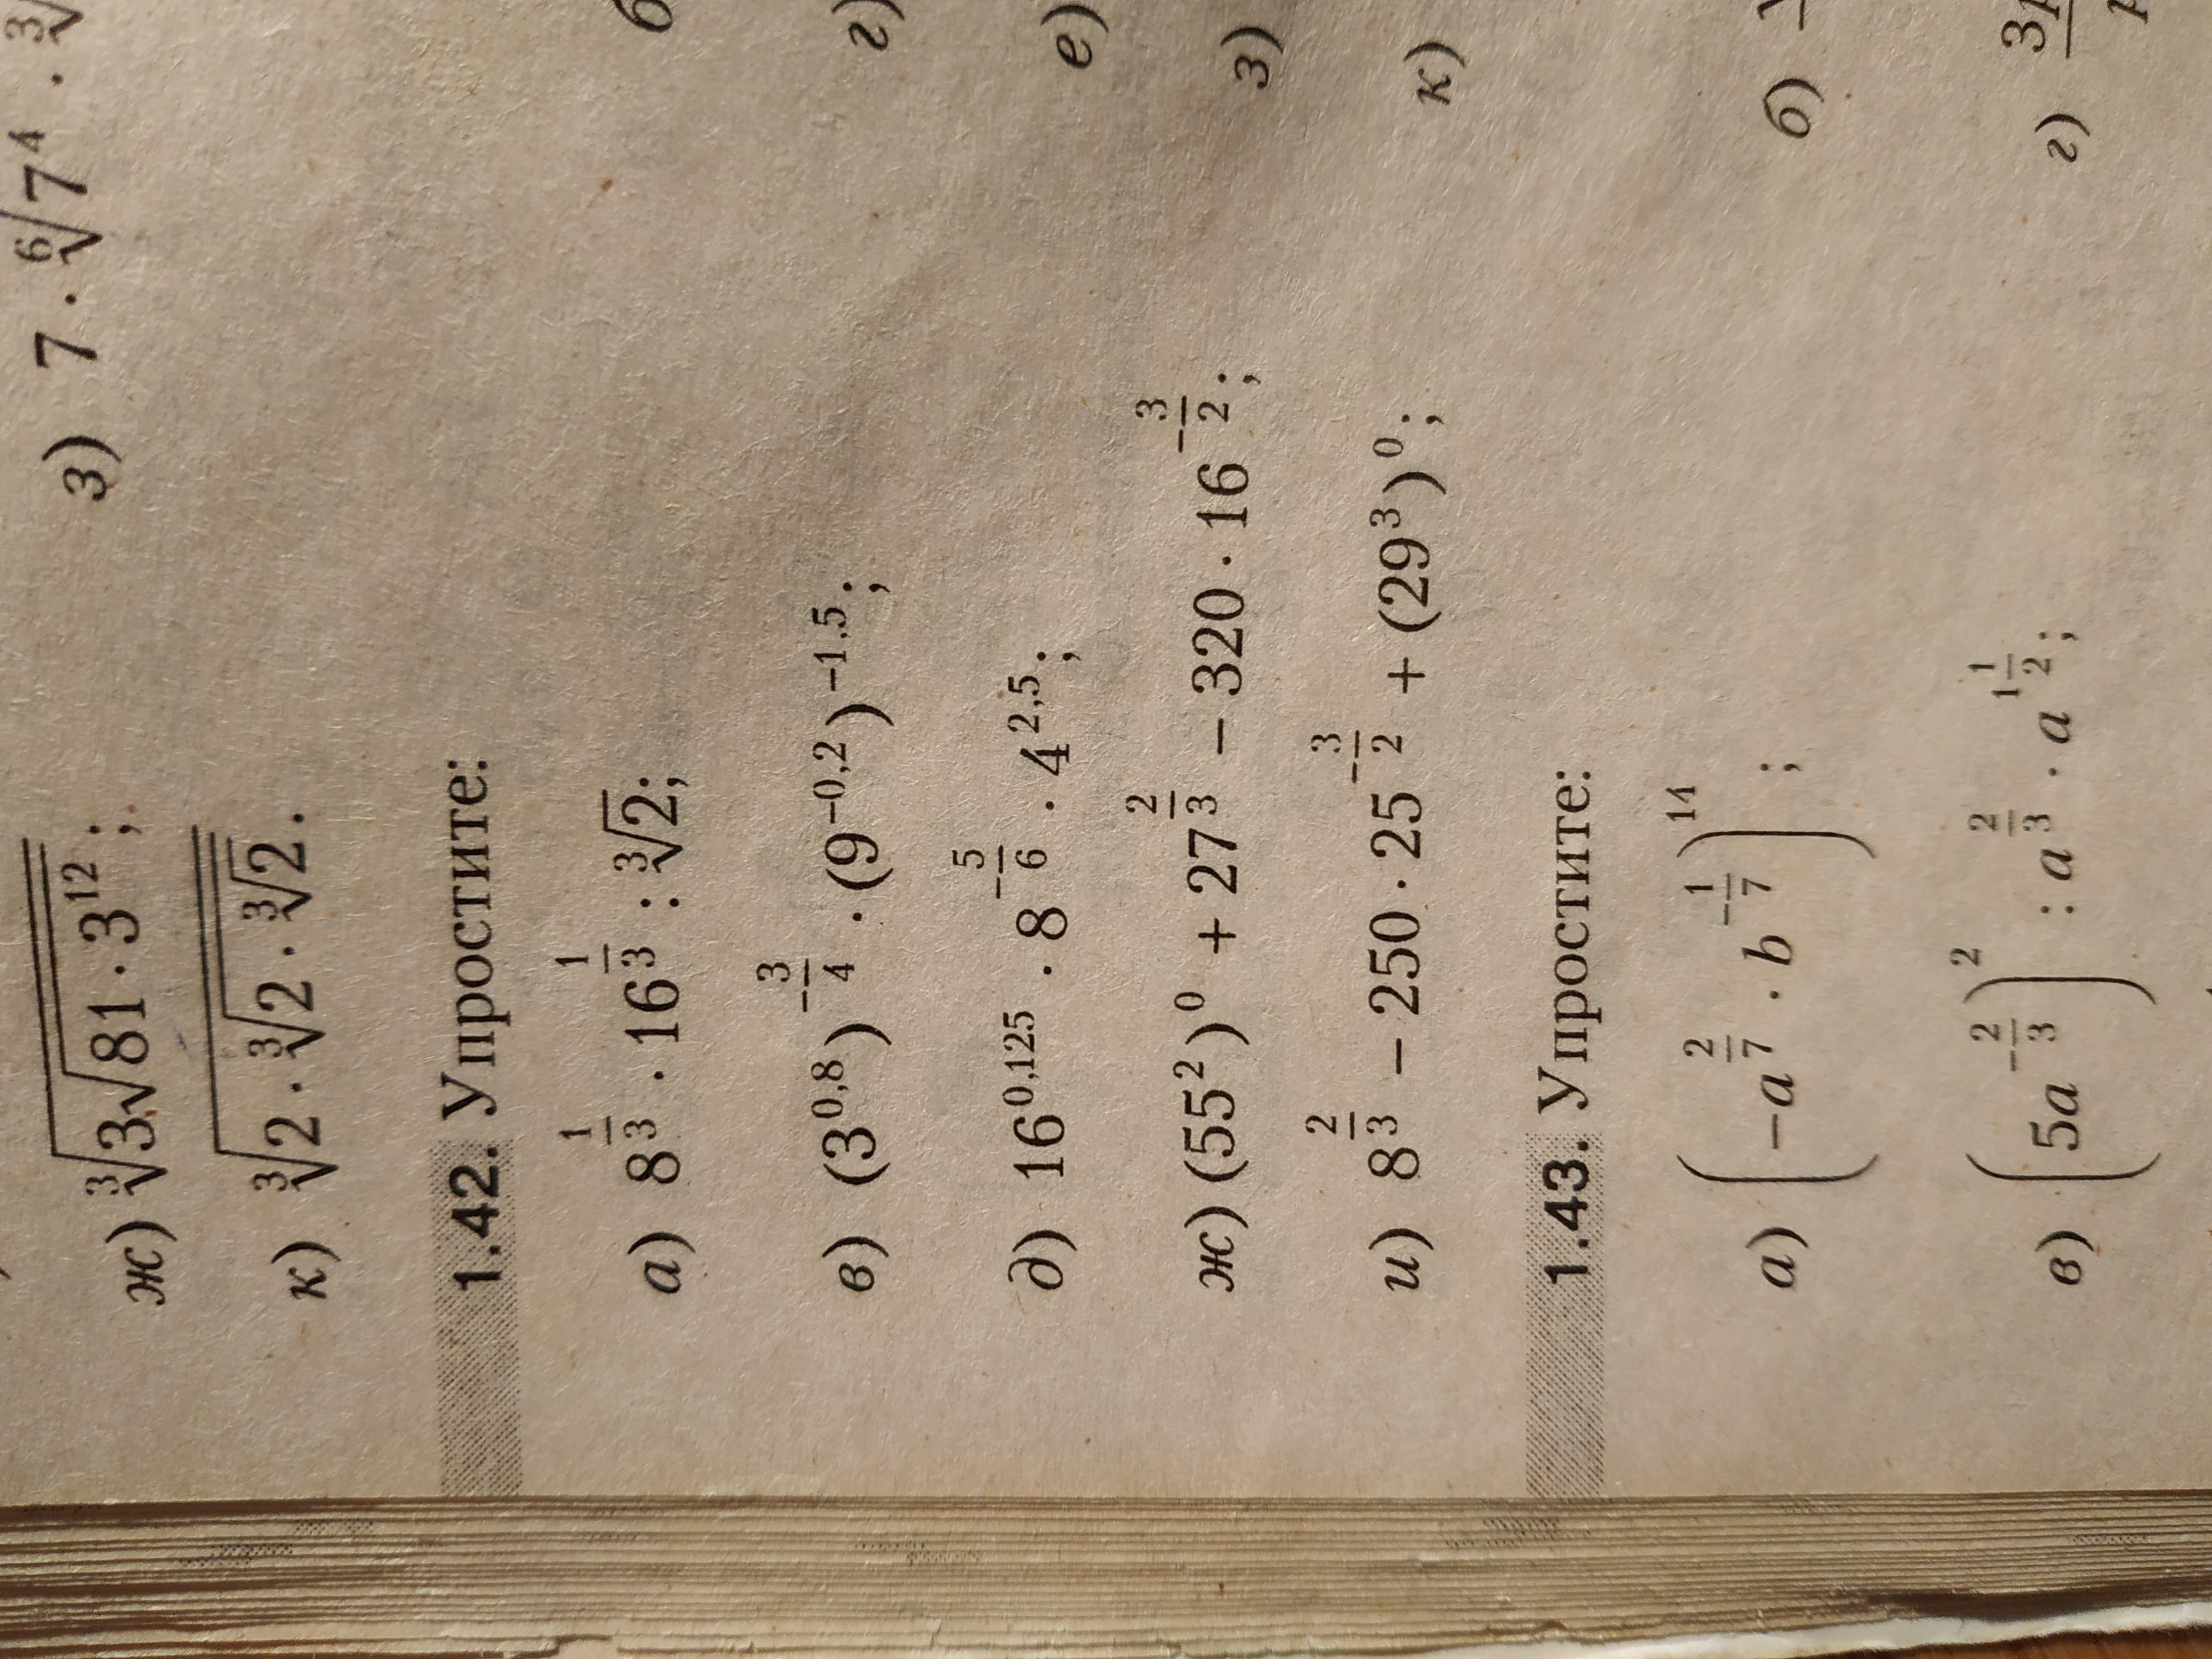 ж) ∛(3√(81 · 3¹²)); з) 7 · ⁶√7⁴ · ∛
к) ∛(2 · ∛(2 · ∛2)).
1.42. Упростите:
а) 8^(1/3) · 16^(1/3) : ∛2; б
в) (3^(0,8))^(-3/4) · (9^(-0,2))^(-1,5); г)
д) 16^(0,125) · 8^(-5/6) · 4^(2,5); е)
ж) (55²)⁰ + 27^(2/3) − 320 · 16^(-3/2); з)
и) 8^(2/3) − 250 · 25^(-3/2) + (29³)⁰; к)
1.43. Упростите:
а) (−a^(2/7) · b^(-1/7))^14; б)
в) (5a^(-2/3))² : a^(2/3) · a^(1 1/2); г) 3